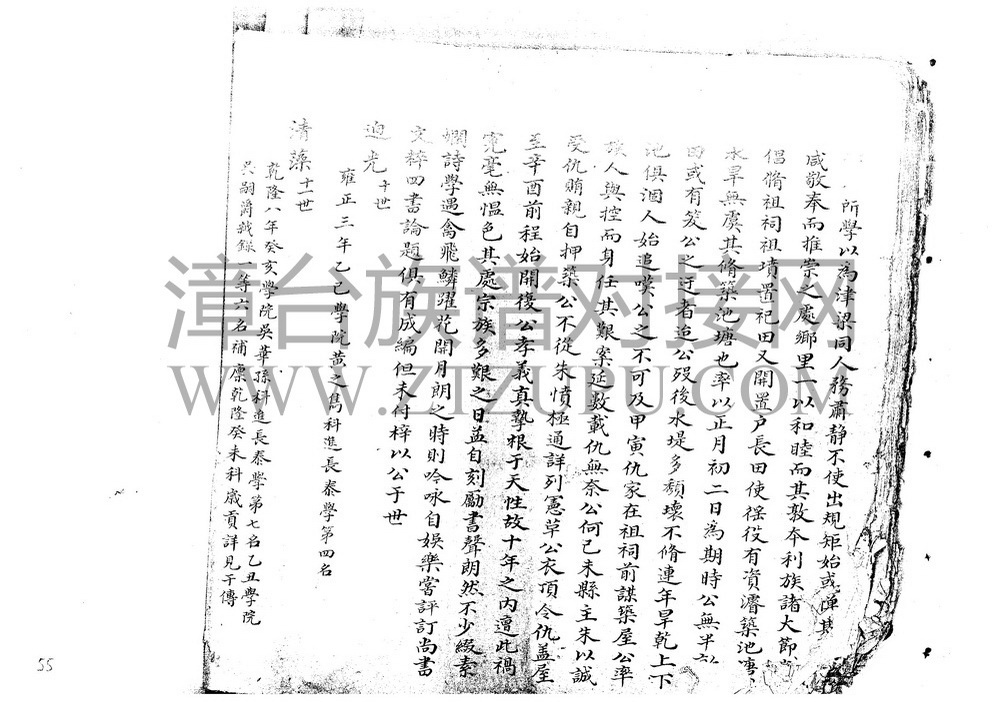 所學以為津梁同人務肅靜不使出規矩始或憚其
咸敬奉而推崇之處鄉里一以和睦而其敦本利族諸大節
倡脩祖祠祖墳置祀田又開置戶長田使徭役有資濬築池塘
水旱無虞其脩築池塘也率以正月初二日為期時公無半
田或有笑公之迂者迨公歿後水堤多頹壞不脩連年旱乾上下
池俱涸人始追嘆公之不可及甲寅仇家在祖祠前謀築屋公率
族人與控而身任其艱案延數載仇無奈公何己未縣主朱以誠
受仇賄親自押築公不從朱憤極通詳列憲革公衣頂令仇蓋屋
至辛酉前程始開復公孝義真摯根于天性故十年之內遭此禍
冤毫無慍色其處宗族多艱之日益自刻勵書聲朗然不少綴素
嫻詩學遇禽飛鱗躍花開月朗之時則吟咏自娛樂嘗評訂尚書
文粹四書論題俱有成編但未付梓以公于世
迎光十世
雍正三年乙巳學院黃之雋科進長泰學第四名
清藻十一世
乾隆八年癸亥學院吳華孫科進長泰學第七名乙丑學院
吳嗣爵歲錄一等六名補廩乾隆癸未科歲貢詳見下傳
漳台族谱对接网
WWW.ZTZUPU.COM
55